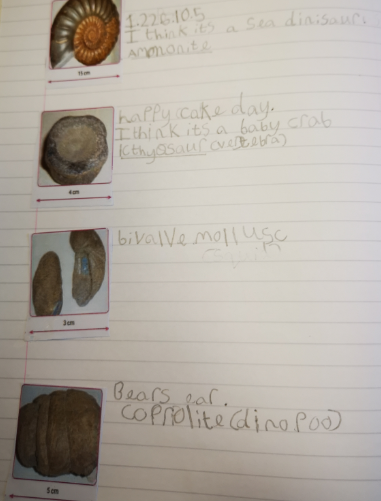 1.226.10.5
I think its a sea dinisaur.
Ammonite
11cm
happy cake day.
I think its a baby crab
Icthyosaur (vertebra)
4cm
bivalve mollusc
3cm
Bears ear.
coprolite (dino poo)
5cm